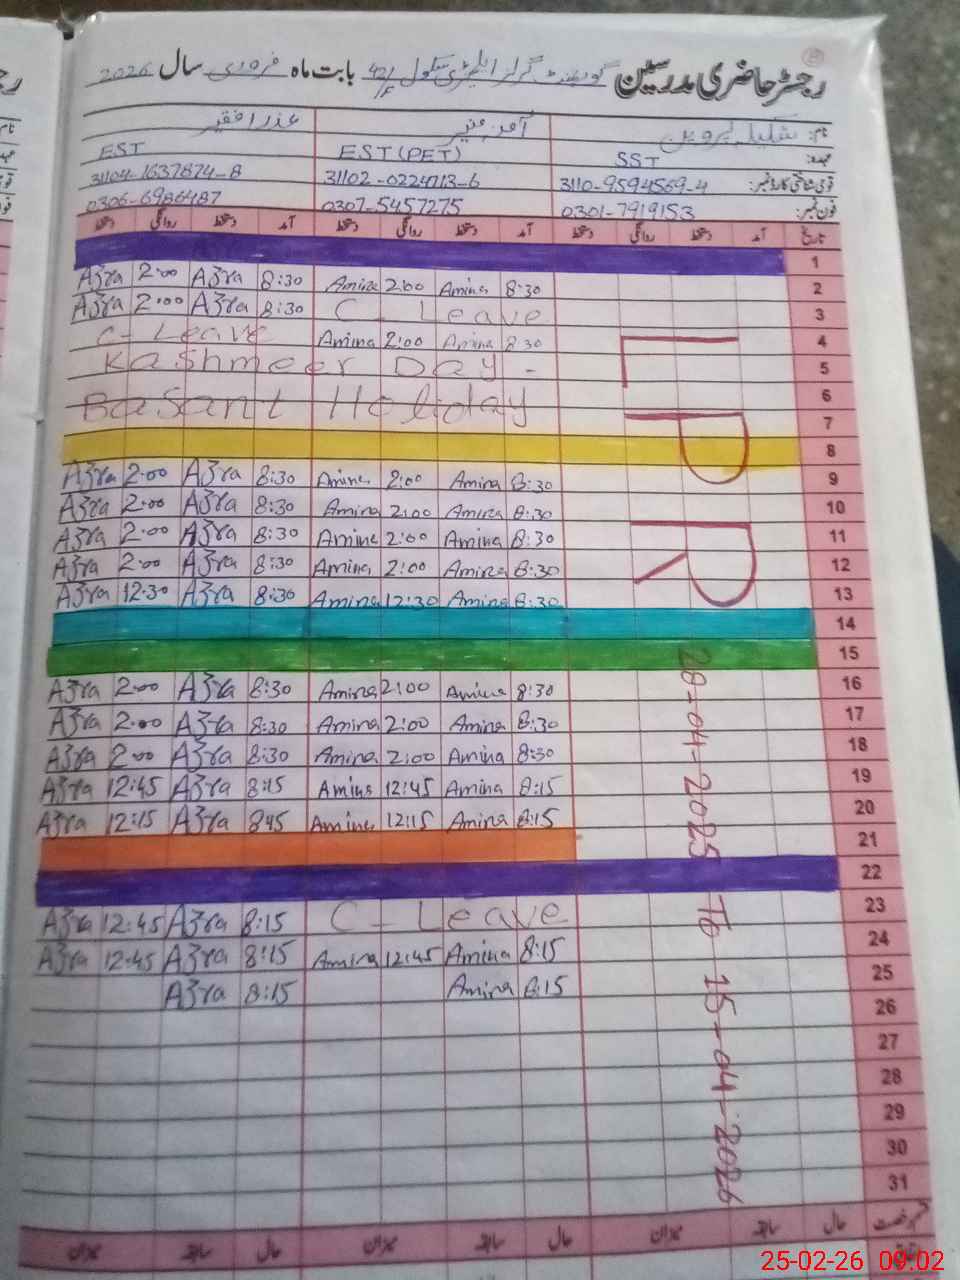 رجسٹر حاضری مدرسین گورنمنٹ گرلز ایلیمنٹری سکول 42/F بابت ماہ فروری سال 2026
نام: شکیلہ پروین آمنہ منیر عذرا فقیر
عہدہ: SST EST (PET) EST
قومی شناختی کارڈ نمبر: 3110-9594569-4 31102-0224713-6 31104-1637874-8
فون نمبر: 0301-7919153 0307-5457275 0306-6986487
تاریخ آمد دستخط روانگی دستخط آمد دستخط روانگی دستخط آمد دستخط روانگی دستخط
1
Azra 2:00 Azra 8:30 Amina 2:00 Amina 8:30 2
Azra 2:00 Azra 8:30 C-Leave 3
C-Leave Amina 2:00 Amina 8:30 4
Kashmeer Day - 5
6
Basant Holiday 7
8
Azra 2:00 Azra 8:30 Amina 2:00 Amina 8:30 9
Azra 2:00 Azra 8:30 Amina 2:00 Amina 8:30 10
Azra 2:00 Azra 8:30 Amina 2:00 Amina 8:30 11
Azra 2:00 Azra 8:30 Amina 2:00 Amina 8:30 12
Azra 12:30 Azra 8:30 Amina 12:30 Amina 8:30 13
14
15
Azra 2:00 Azra 8:30 Amina 2:00 Amina 8:30 16
Azra 2:00 Azra 8:30 Amina 2:00 Amina 8:30 17
Azra 2:00 Azra 8:30 Amina 2:00 Amina 8:30 18
Azra 12:45 Azra 8:15 Amina 12:45 Amina 8:15 19
Azra 12:15 Azra 8:15 Amina 12:15 Amina 8:15 20
21
22
Azra 12:45 Azra 8:15 C-Leave 23
Azra 12:45 Azra 8:15 Amina 12:45 Amina 8:15 24
Azra 8:15 Amina 8:15 25
26
27
28
29
30
31
LPR
28-04-2025 To 15-04-2026
حال سابقہ میزان حال سابقہ میزان حال سابقہ میزان
25-02-26 09:02